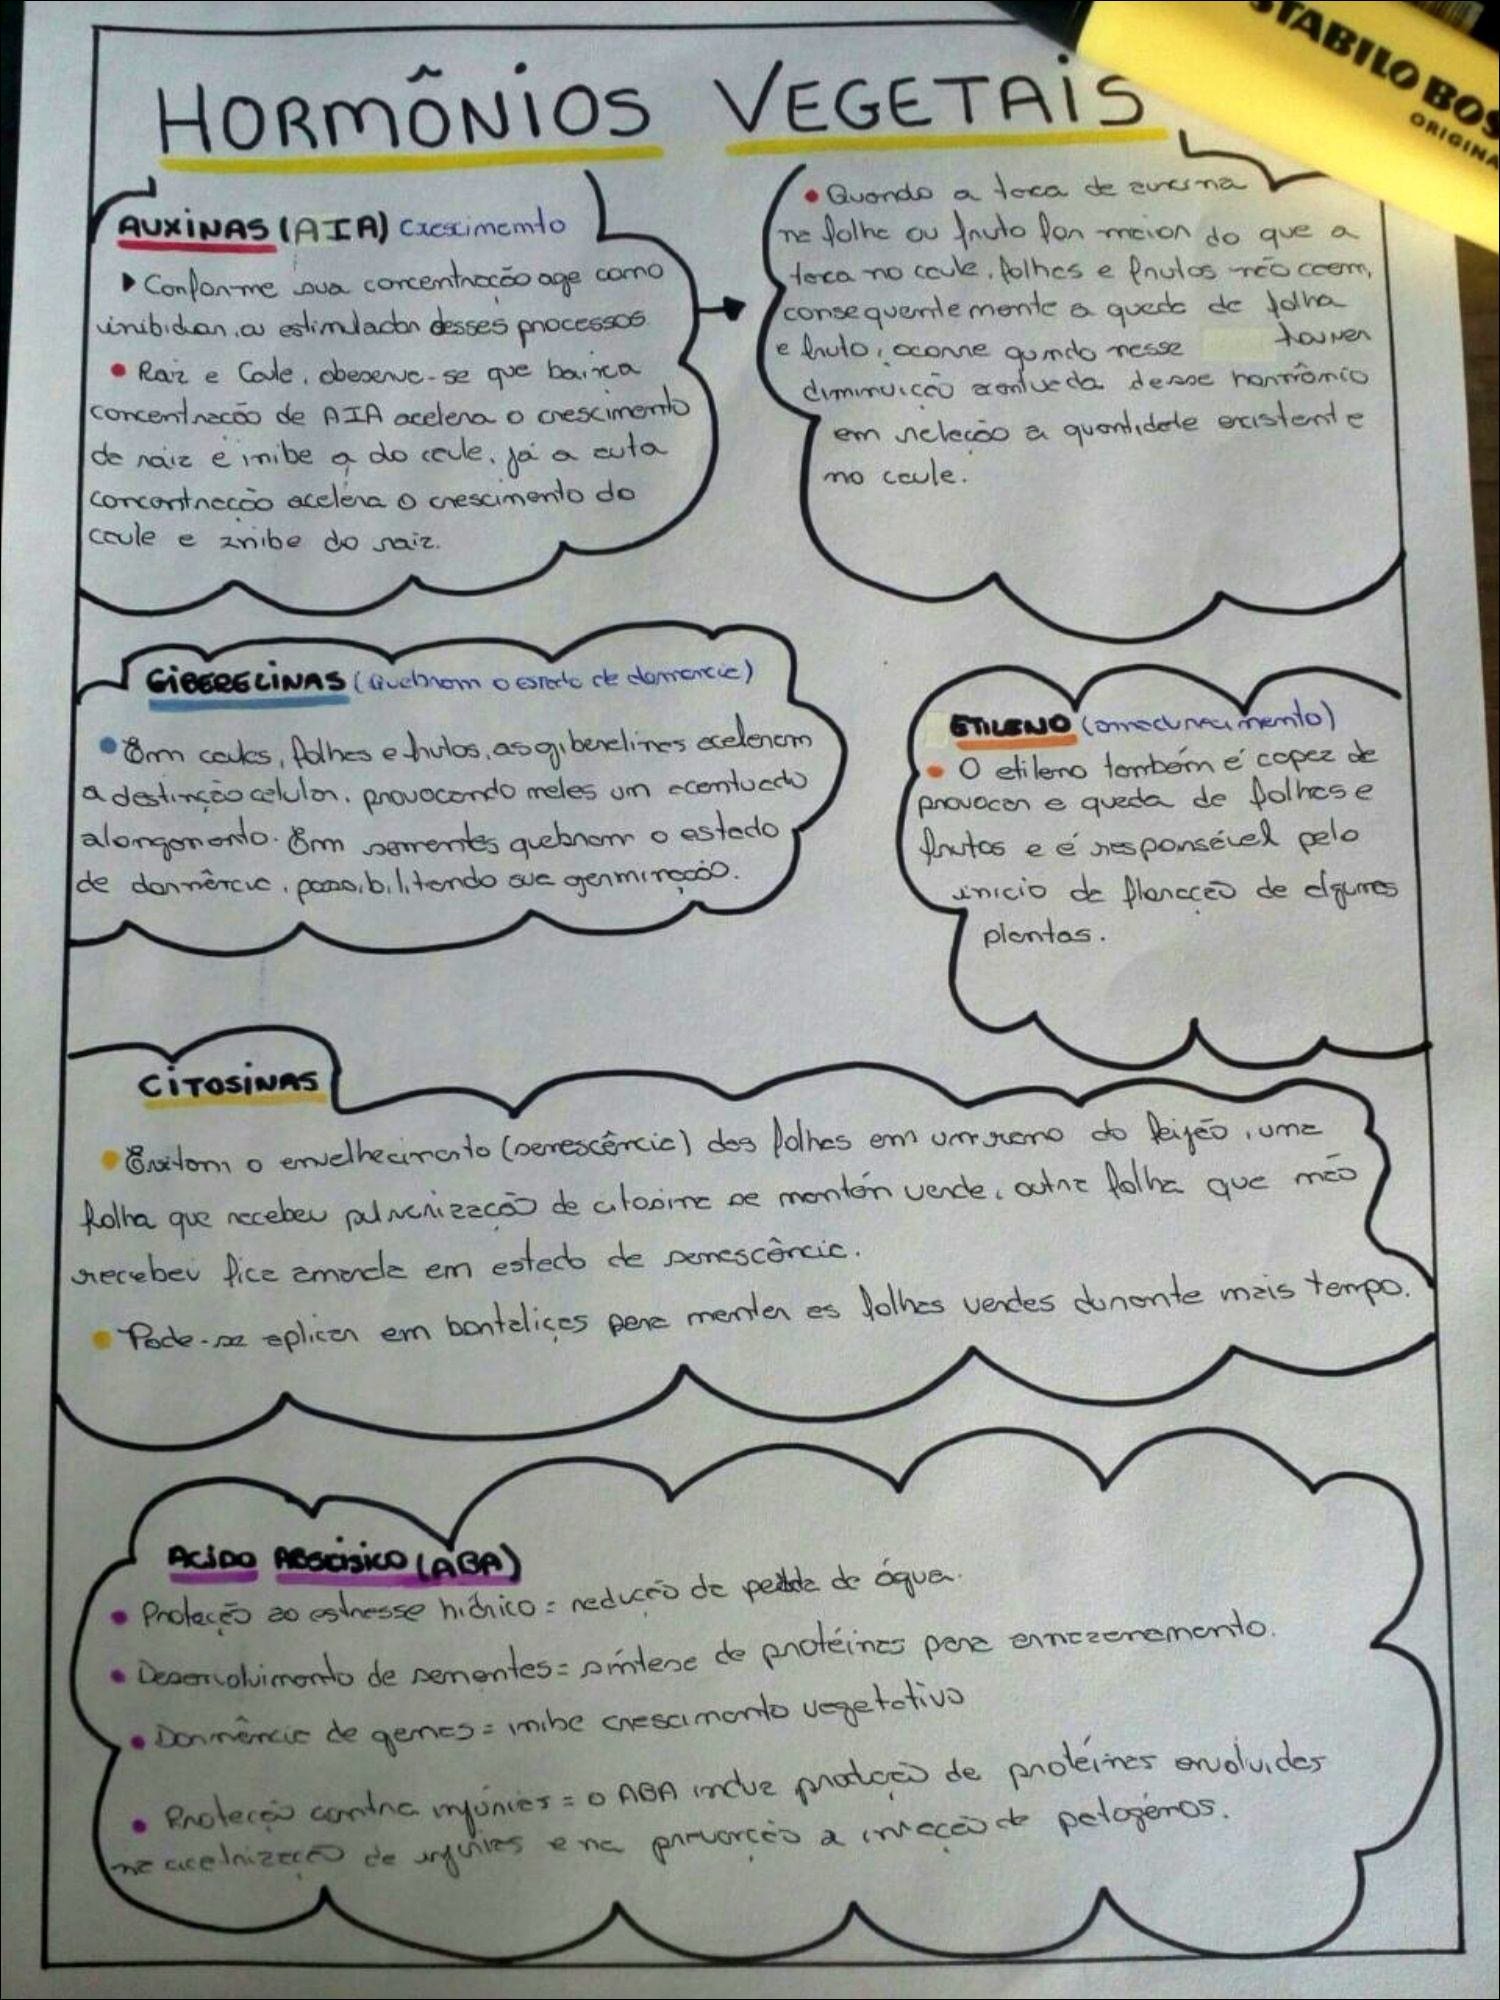 HORMÔNIOS VEGETAIS
STABILO BOS
ORIGINA
AUXINAS (AIA) Crescimento
Conforme sua concentração age como
inibidor ou estimulador desses processos.
• Raiz e Caule, observe-se que baixa
concentração de AIA acelera o crescimento
da raiz e inibe o do caule, já a auta
concentração acelera o crescimento do
caule e inibe do raiz.
• Quando a toca de auxina
na folha ou fruto for maior do que a
toca no caule, folhas e frutos não caem,
consequentemente a queda de folha
e fruto, ocorre quando nesse houver
diminuição acentuada desse hormônio
em relação a quantidade existente
no caule.
GIBERELINAS (Quebram o estado de dormencia)
• Em caules, folhas e frutos, as giberelinas aceleram
a destinção celular, provocando neles um acentuado
alongamento. Em sementes quebram o estado
de dormência, possibilitando sua germinação.
ETILENO (amadurecimento)
• O etileno também é capaz de
provocar e queda de folhas e
frutos e é responsável pelo
inicio da floração de algumas
plantas.
CITOSINAS
• Evitam o envelhecimento (senescência) das folhas em um ramo do feijão, uma
folha que recebeu pulverização de citosina se mantén verde, outra folha que não
recebeu fica amarela em estado de senescência.
• Pode-se aplicar em hortaliças para manter as folhas verdes durante mais tempo.
ACIDO ABSCISICO (ABA)
• Proteção ao estresse hídrico = redução da perda de água.
• Desenvolvimento de sementes = síntese de protéinas para armazenamento.
• Dormência de gemas = inibe crescimento vegetativo
• Proteção contra injúrias = o ABA induz produção de protéinas envolvidas
na cicatrização de injúrias e na prevenção a infecção de patogénos.